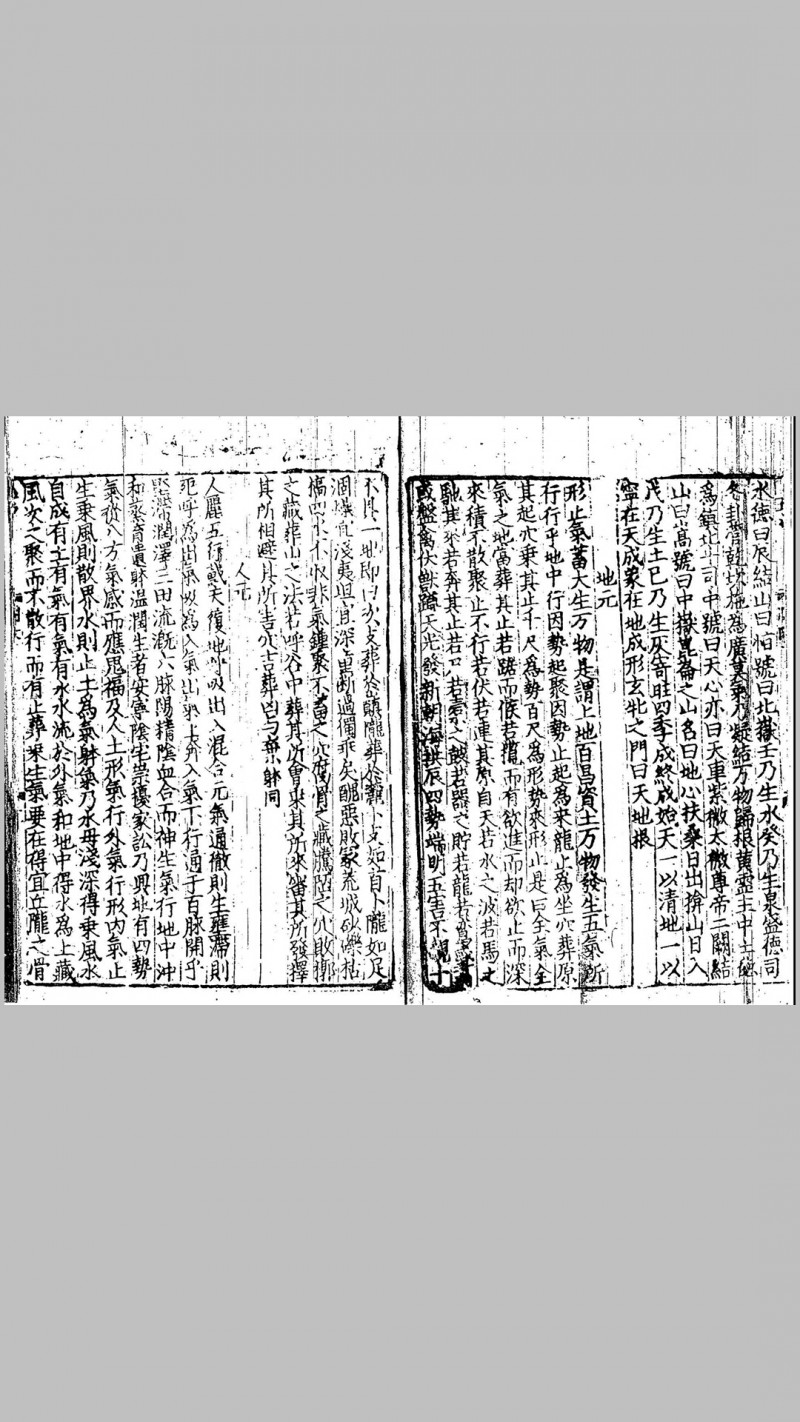 水德曰辰結山曰恒號曰北嶽壬乃生水癸乃生泉盛德司
冬卦管乾坎施為廣莫氣水凝結万物歸根黃靈主中土德
為鎮北斗司中號曰天心亦曰天車紫微太微尊帝一關結
山曰嵩號曰中嶽崑崙之山名曰地心扶桑日出弇山日入
戊乃生土己乃生灰寄旺四季成終成始天一以清地一以
寧在天成象在地成形玄牝之門曰天地根
地元
形止氣蓄大生万物是謂上地百昌資土万物發生五氣所
行行乎地中行因勢起聚因勢止起為來龍止為坐穴葬原
其起穴乘其止千尺為勢百尺為形勢來形止是曰全氣全
氣之地當葬其止若踞而候若攬而有欲進而却欲止而深
來積不散聚止不行若伏若連其原自天若水之波若馬之
馳其來若奔其止若尸若橐之鼓若器之貯若龍若鸞
或盤禽伏獸蹲天光發新朝海拱辰四勢端明五害不親十
不具一地即曰次支葬於巔隴葬於麓卜支如首卜隴如足
涸燥宜淺夷坦宜深崗斷過獨乖戾醜惡敗冢荒城砂礫枯
槁四水不收非氣鍾聚不畜之穴腐骨之藏騰陷之穴敗槨
之藏葬山之法若呼谷中葬其所會乘其所來審其所發擇
其所相避其所害穴吉葬凶与棄屍同
人元
人稟五行戴天復地呼吸出入混合元氣通徹則生壅滯則
死呼為出氣吸為入氣出氣上奔入氣下行通于百脉開乎
潤澤三田流溉六脉陽精陰血合而神生氣行地中沖
和孕育遺骸溫潤生者安寧陰宅崇擾家訟乃興址有四勢
氣從八方氣感而應鬼福及人土形氣行外氣行形內氣止
生乘風則散界水則止土為氣軀氣乃水母淺深得乘風水
自成有土有氣有氣有水水流於外氣和地中得水為上藏
風次之聚而不散行而有止葬乘生氣要在得宜丘隴之骨